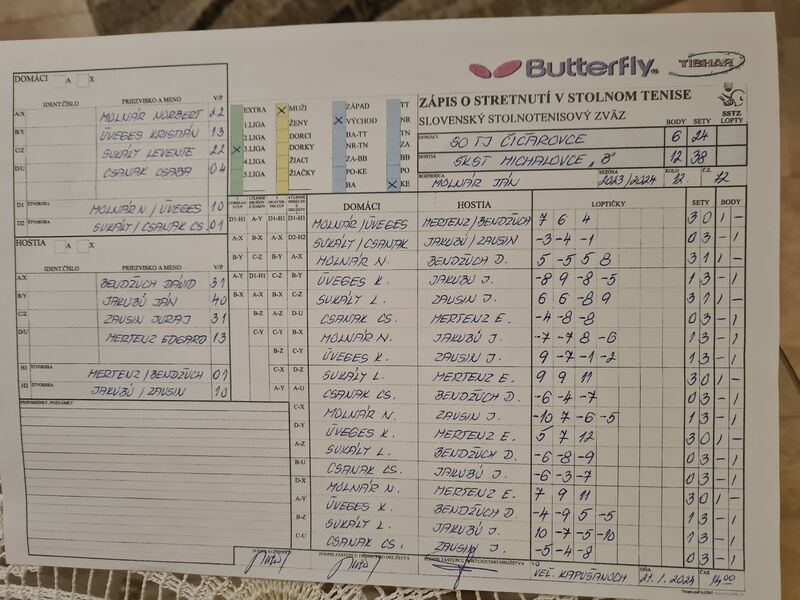 Butterfly TIBHAR
DOMÁCI A X
IDENT.ČÍSLO PRIEZVISKO A MENO V/P
A/X MOLNÁR NORBERT 2 2
B/Y ÜVEGES KRISTIÁN 1 3
C/Z SUKÁLY LEVENTE 2 2
D/U CSANAK CSABA 0 4
D1 ŠTVORHRA MOLNÁR N / ÜVEGES 1 0
D2 ŠTVORHRA SUKÁLY / CSANAK CS. 0 1
HOSTIA A X
IDENT.ČÍSLO PRIEZVISKO A MENO V/P
A/X BENDŽÚCH DÁVID 3 1
B/Y JAKUBÚ JÁN 4 0
C/Z ZAUSIN JURAJ 3 1
D/U MERTENZ EDGARD 1 3
H1 ŠTVORHRA MERTENZ / BENDŽÚCH 0 1
H2 ŠTVORHRA JAKUBÚ / ZAUSIN 1 0
PRIPOMIENKY, POZNÁMKY
EXTRA X MUŽI ZÁPAD TT
1.LIGA ŽENY X VÝCHOD NR
2.LIGA DORCI BA-TT TN
X 3.LIGA DORKY NR-TN ZA
4.LIGA ŽIACI ZA-BB BB
5.LIGA ŽIAČKY PO-KE PO
BA X KE
ZÁPIS O STRETNUTÍ V STOLNOM TENISE
SLOVENSKÝ STOLNOTENISOVÝ ZVÄZ
SSTZ
BODY SETY LOPTY
DOMÁCI SO TJ ČIČAROVCE 6 24
HOSTIA ŠKST MICHALOVCE „B" 12 38
ROZHODCA MOLNÁR JÁN SEZÓNA 2023/2024 KOLO 12. Č.Z. 72
DOMÁCI HOSTIA LOPTIČKY SETY BODY
D1-H1 A-Y D1-H1 D1-H1 MOLNÁR / ÜVEGES MERTENZ / BENDŽÚCH 7 6 4 3 0 1 -
A-X B-X A-X D2-H2 SUKÁLY / CSANAK JAKUBÚ / ZAUSIN -3 -4 -1 0 3 - 1
B-Y C-Z B-Y A-X MOLNÁR N. BENDŽÚCH D. 5 -5 5 8 3 1 1 -
A-Y D1-H1 C-Z B-Y ÜVEGES K. JAKUBÚ J. -8 9 -8 -5 1 3 - 1
B-X A-X B-X C-Z SUKÁLY L. ZAUSIN J. 6 6 -8 9 3 1 1 -
B-Z A-Z D-U CSANAK CS. MERTENZ E. -4 -8 -8 0 3 - 1
C-Y C-Y B-X MOLNÁR N. JAKUBÚ J. -7 -7 8 -6 1 3 - 1
B-Z C-Y ÜVEGES K. ZAUSIN J. 9 -7 -1 -2 1 3 - 1
C-X D-Z SUKÁLY L. MERTENZ E. 9 9 11 3 0 1 -
A-Y A-U CSANAK CS. BENDŽÚCH D. -6 -4 -7 0 3 - 1
C-X MOLNÁR N. ZAUSIN J. -10 7 -6 -5 1 3 - 1
D-Y ÜVEGES K. MERTENZ E. 5 7 12 3 0 1 -
A-Z SUKÁLY L. BENDŽÚCH D. -6 -8 -9 0 3 - 1
B-U CSANAK CS. JAKUBÚ J. -6 -3 -7 0 3 - 1
D-X MOLNÁR N. MERTENZ E. 7 9 11 3 0 1 -
A-Y ÜVEGES K. BENDŽÚCH D. -4 -9 5 -5 1 3 - 1
B-Z SUKÁLY L. JAKUBÚ J. 10 -7 -5 -10 1 3 - 1
C-U CSANAK CS. ZAUSIN J. -5 -4 -8 0 3 - 1
VO VEĽ. KAPUŠANOCH DŇA 21.1.2024 ČAS 14 00